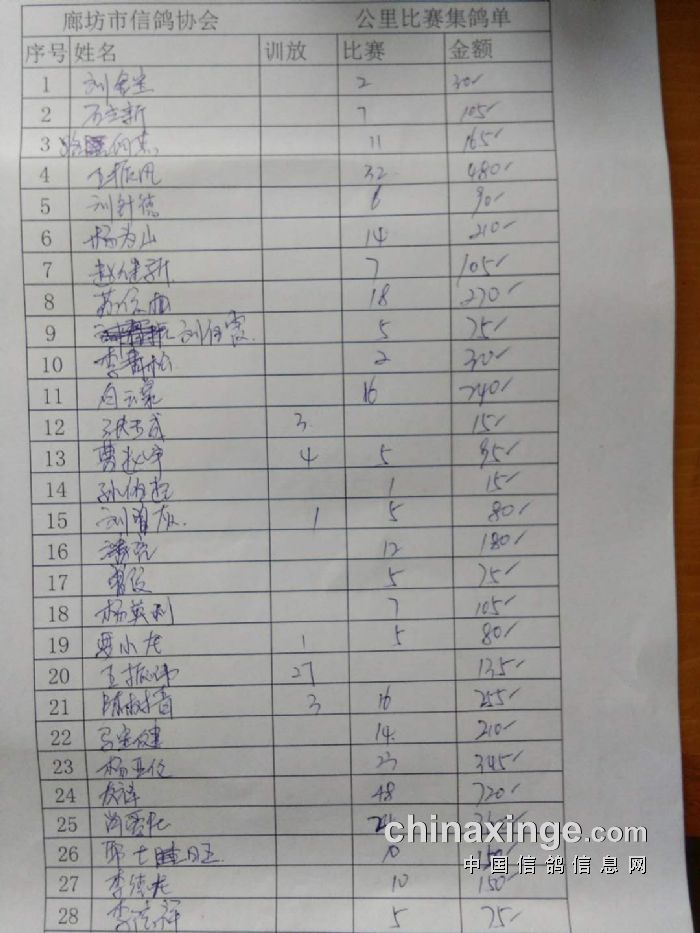 廊坊市信鸽协会 公里比赛集鸽单
序号 姓名 训放 比赛 金额
1 刘金生 2 30
2 石立新 7 105
3 11 165
4 王振凤 32 480
5 刘针德 6 90
6 杨为山 14 210
7 赵健新 7 105
8 苏俊 18 270
9 刘仕霞 5 75
10 李青松 2 30
11 白云 16 240
12 3 15
13 曹赵宇 4 5 95
14 孙 1 15
15 刘 1 5 80
16 12 180
17 曹俊 5 75
18 杨英利 7 105
19 小龙 1 5 80
20 王振伟 27 135
21 陈 3 16 255
22 马宝健 14 210
23 杨亚俊 23 345
24 48 720
25
26 10 150
27 李德龙 10 150
28 李 祥 5 75
chinaxinge.com
中国信鸽信息网